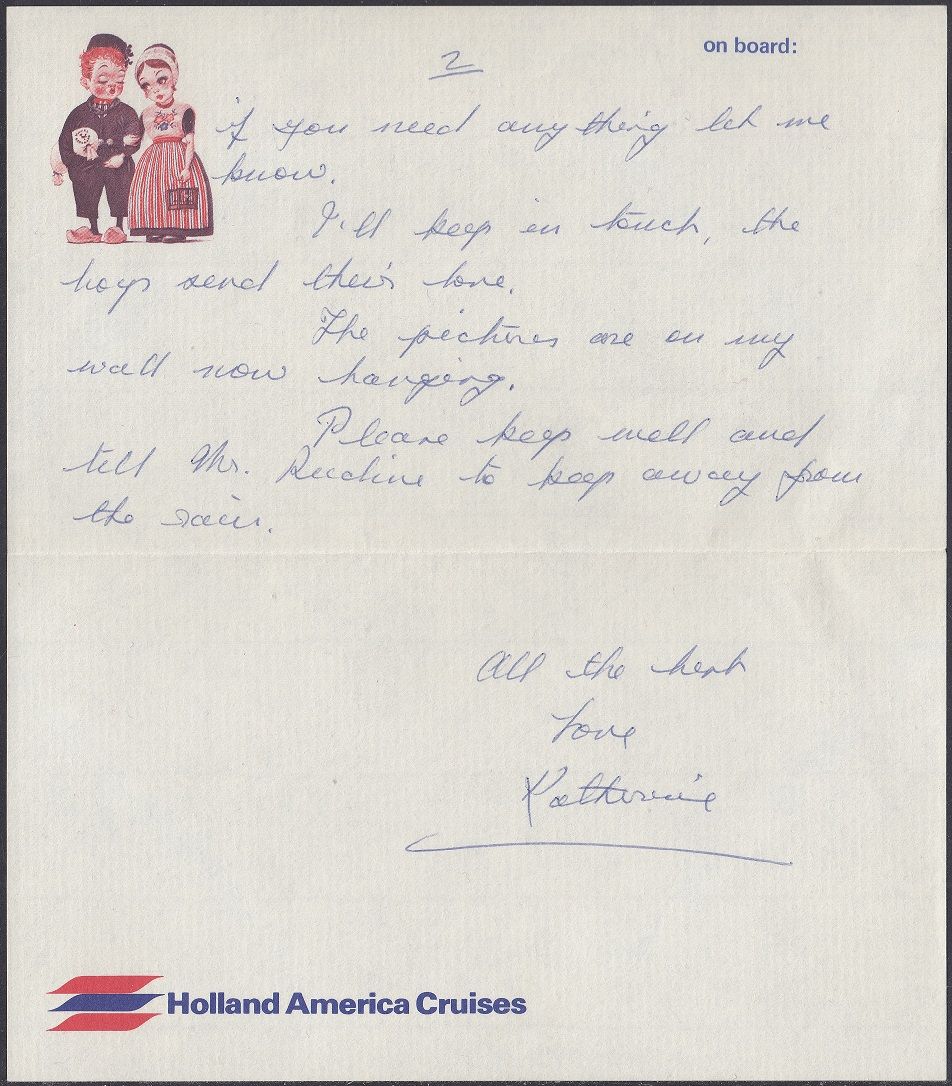 on board:
2
if you need anything let me
know.
I'll keep in touch, the
boys send their love.
The pictures are on my
wall now hanging.
Please keep well and
tell Mr. to keep away from
the rain.
All the best
Love
Katherine
Holland America Cruises